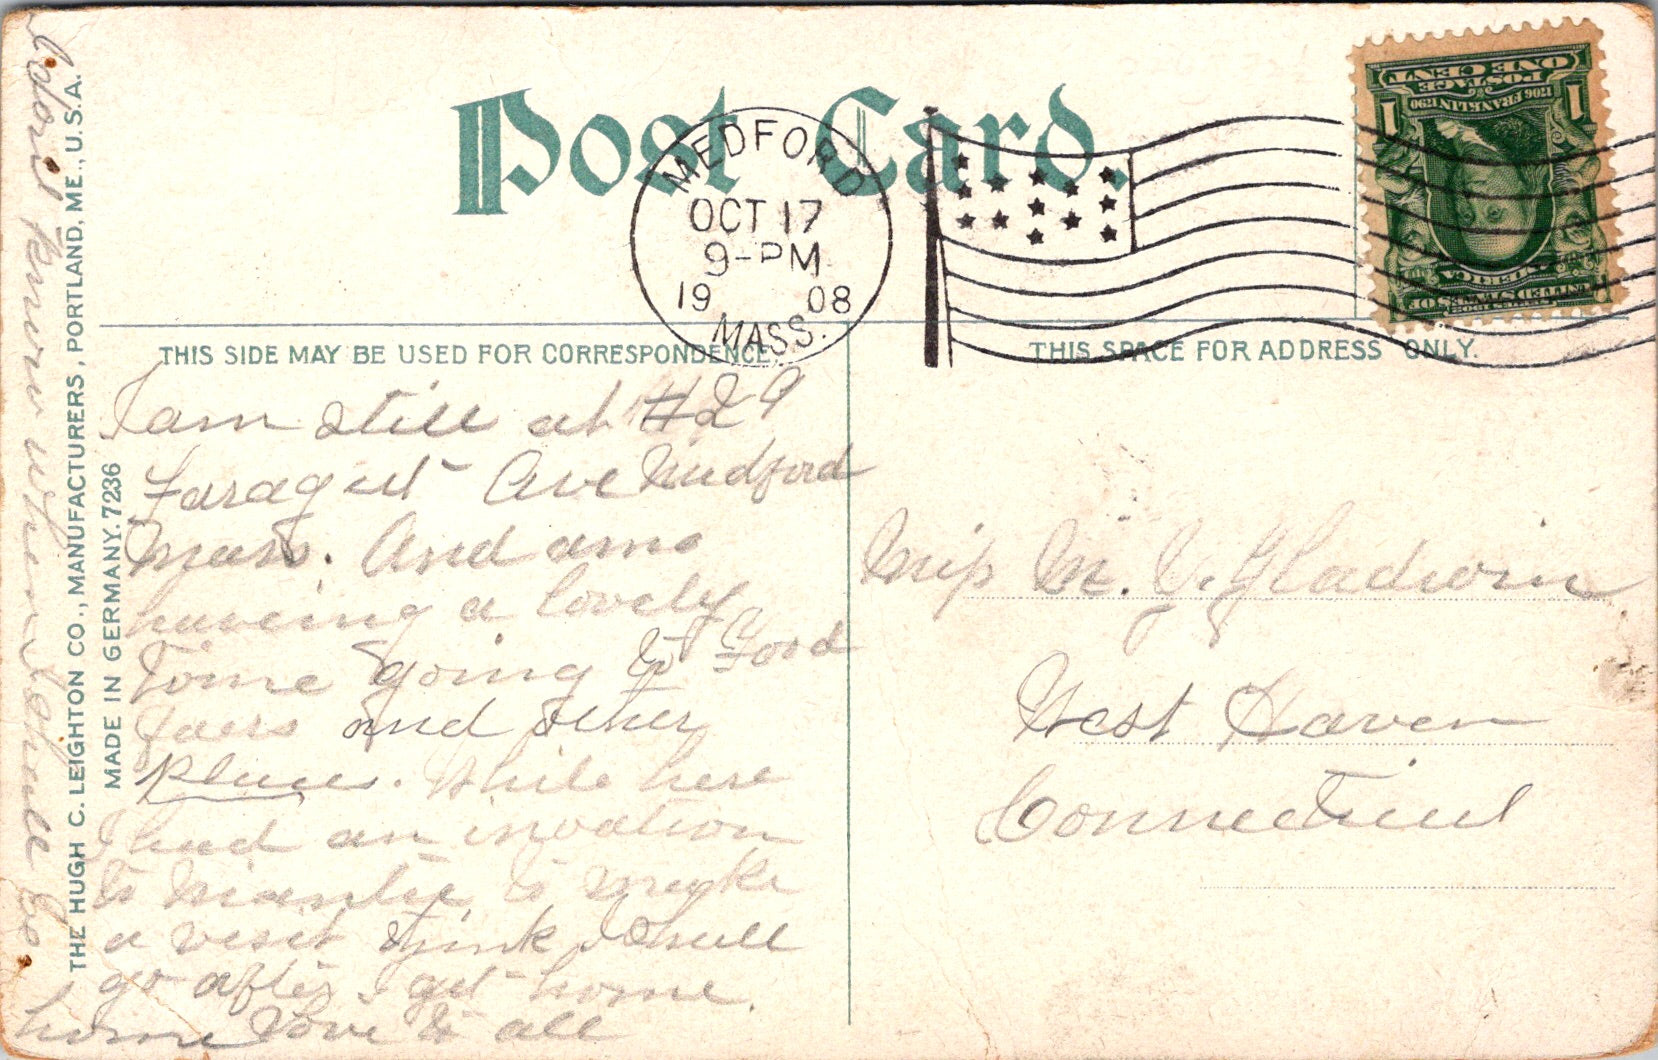 Post Card.
MEDFORD
OCT 17
9-PM
19 08
MASS.
1 ONE CENT 1
POSTAGE
1706 FRANKLIN 1790
UNITED STATES OF
AMERICA
THIS SIDE MAY BE USED FOR CORRESPONDENCE.
THIS SPACE FOR ADDRESS ONLY.
I am still at #29
Faragut Ave Medford
Mass. And am
haveing a lovely
Time going to Food
Faers and other
Places. While here
I had an invation
to Niantic to make
a visit think I shall
go after I get home.
home Love to all
dont know when I shall go
Miss M. J. Gladwin
West Haven
Connecticut
THE HUGH C. LEIGHTON CO., MANUFACTURERS, PORTLAND, ME., U.S.A.
MADE IN GERMANY. 7236